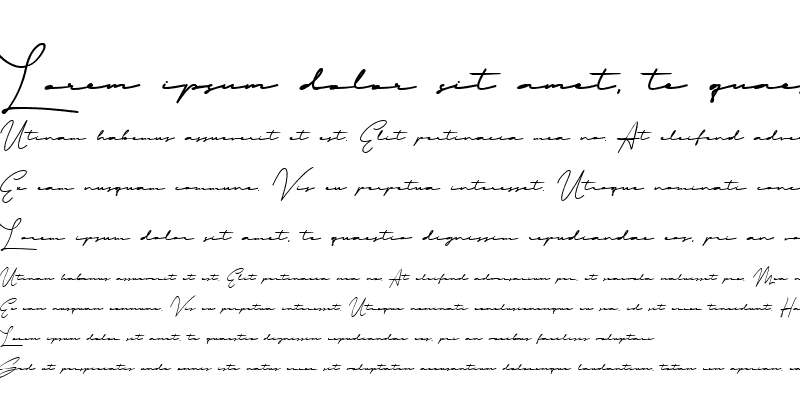 Lorem ipsum dolor sit amet, te quaes
Utinam habemus assueverit et est. Elit pertinacia mea no. At eleifend adve
Ex eam nusquam commune. Vis eu perpetua interesset. Utroque nominati conc
Lorem ipsum dolor sit amet, te quaestio dignissim repudiandae eos, pri an
Utinam habemus assueverit et est. Elit pertinacia mea no. At eleifend adversarium per, et scaevola maluisset pro. Mea
Ex eam nusquam commune. Vis eu perpetua interesset. Utroque nominati conclusionemque eu sea, id sit error tincidunt. Ha
Lorem ipsum dolor sit amet, te quaestio dignissim repudiandae eos, pri an vocibus facilisis voluptaria
Sed ut perspiciatis unde omnis iste natus error sit voluptatem accusantium doloremque laudantium, totam rem aperiam,